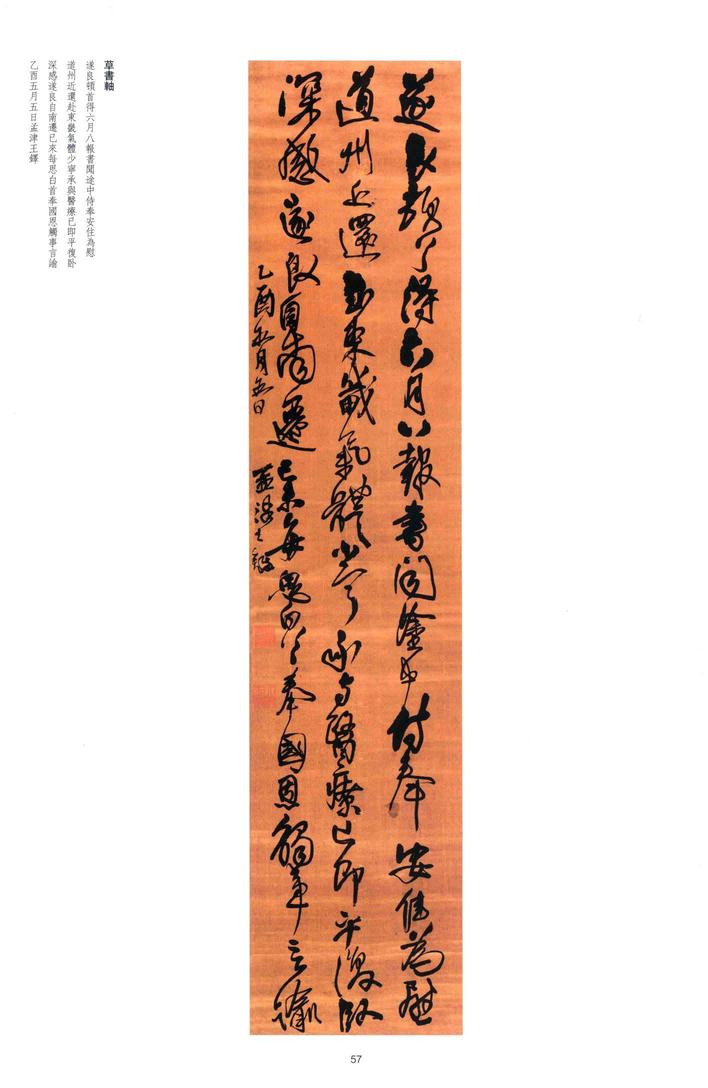 草書軸
遂良頓首得六月八報書聞途中侍奉安住為慰
道州近還赴東畿氣體少寧承與醫療已即平復卧
深感遂良自南遷已來每思白首奉國恩觸事言諭
乙酉五月五日孟津王鐸
遂良頓首得六月八報書聞途中侍奉安住為慰
道州近還赴東畿氣體少寧承與醫療已即平復卧
深感遂良自南遷已來每思白首奉國恩觸事言諭
乙酉五月五日孟津王鐸
57